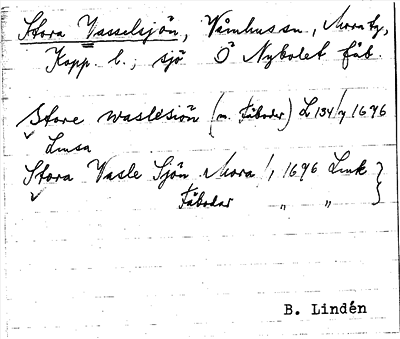 Stora Vasselsjön, Våmhus sn., Mora tg,
Kopp. l.; sjö Ö Nybolet fäb.
Store waslesiön (m. Fäboder) L 134/7 1696
Lmsa
Stora Vasle Sjön Mora 1, 1696 Lmk }
Fäbodar " " }
B. Lindén